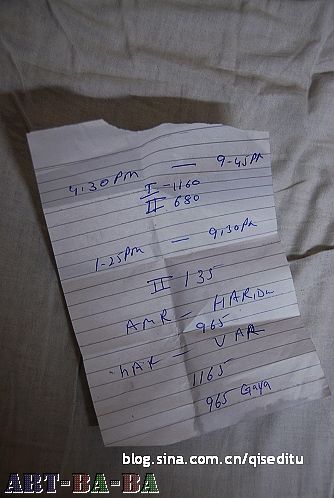 4.30 Pm — 9-45 Pm
I - 1160
II 680
1-25 Pm — 9,30 Pm
II 135
AMR — HARIDW
965
HAR — VAR
1165
965 Gaya
blog.sina.com.cn/qiseditu
ART-BA-BA